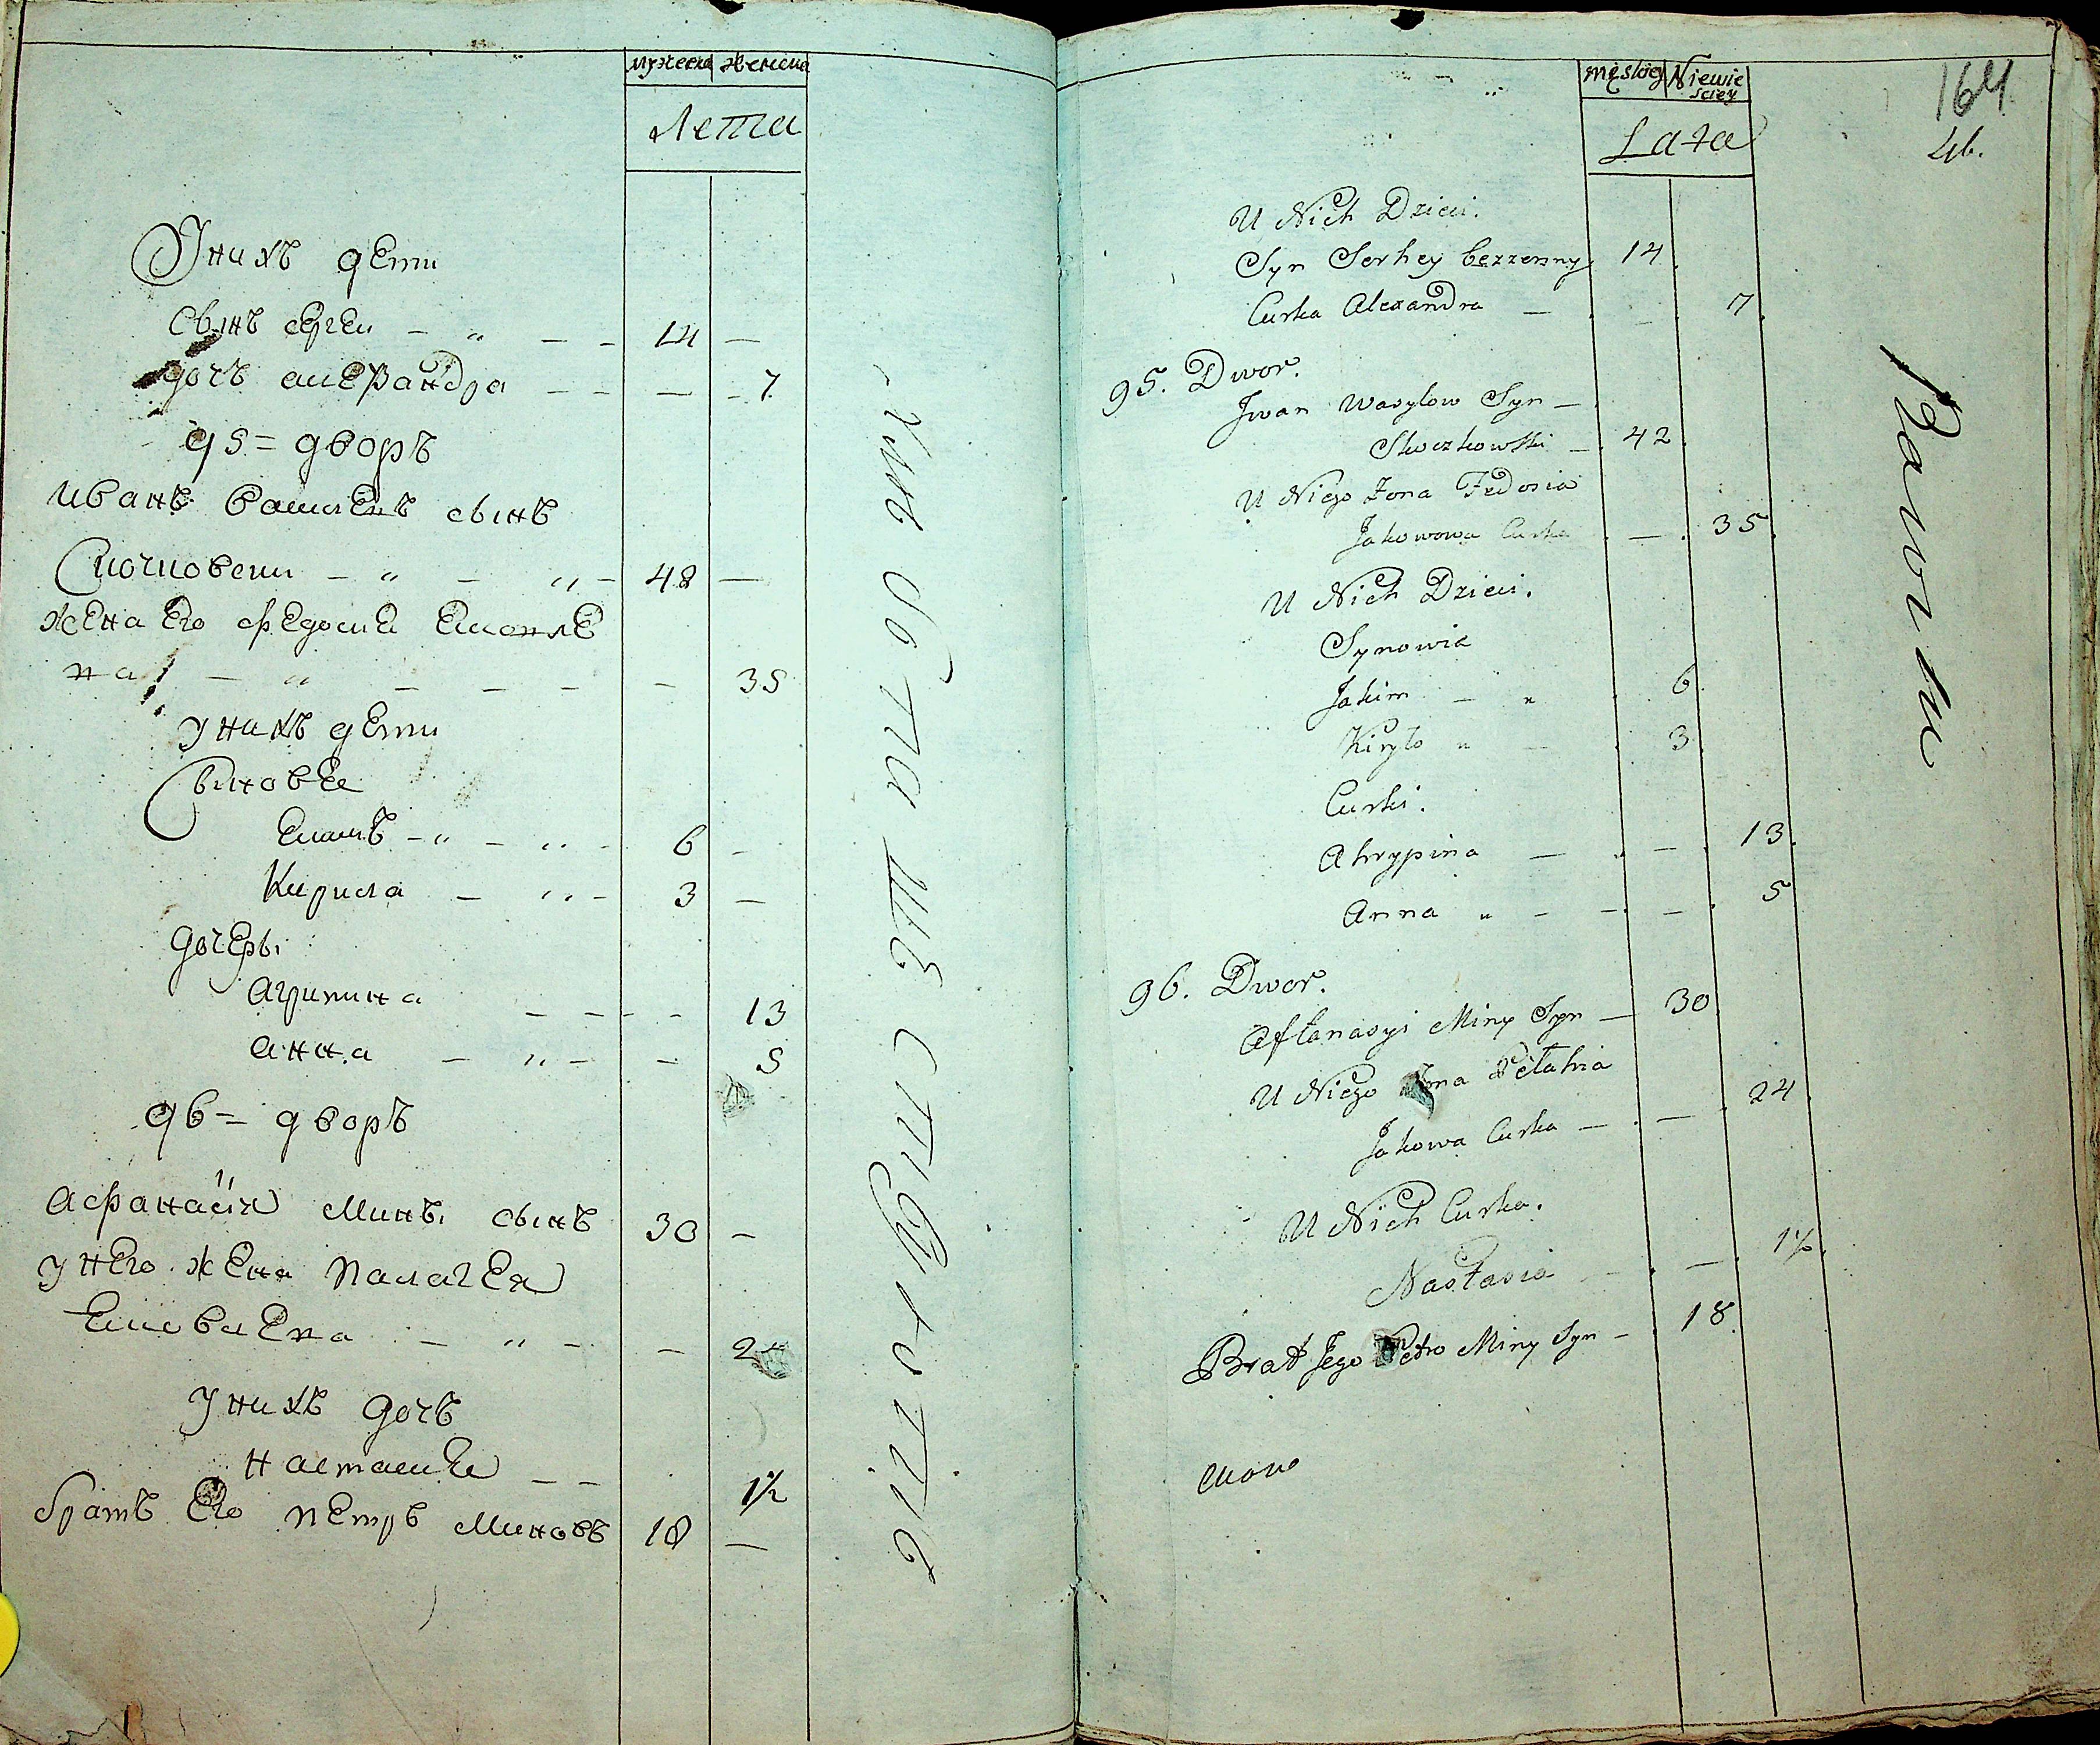 мужеска женска
Лета
У нихъ дети
Сынъ сергеи - „ - - 14 -
дочъ алеѯандра - - - - 7
95 = дворъ
иванъ василевъ сынъ
Скочковски - „ - „ - 42 -
жена его федосиа
на - „ - - - - 35
у нихъ дети
Синовье
екимъ - „ - „ - 6 -
Кирила - „ - 3 -
дочеры
агрипина - - - - 13
анна - „ - - 5
96 = дворъ
афанасiи Мины сынъ 30 -
у него жена палагея
- „ - - 2
у нихъ дочъ
настасие - - 1½
братъ его петръ Миновъ 18 -
męskiey Niewiesciey
Lata
164
46.
U Nich Dzieci.
Syn Serhey bezzenny 14
Curka Alexandra - - 7.
95. Dwor.
Jwan Wasylow Syn -
Skoczkowski - 42
U Niego Zona Fedosia
Jakowowa Curka - 35.
U Nich Dzieci.
Synowie
Jakim - „ 6.
Kiryło „ - 3.
Curki.
Ahrypina - - 13.
Anna „ - - - 5
96. Dwor.
Aftanasyi Miny Syn - 30
U Niego Zona Pelahia
Jakowa Curka - - 24
U Nich Curka.
Nastasia - - 1½.
Brat Jego Petro Miny Syn - 18.